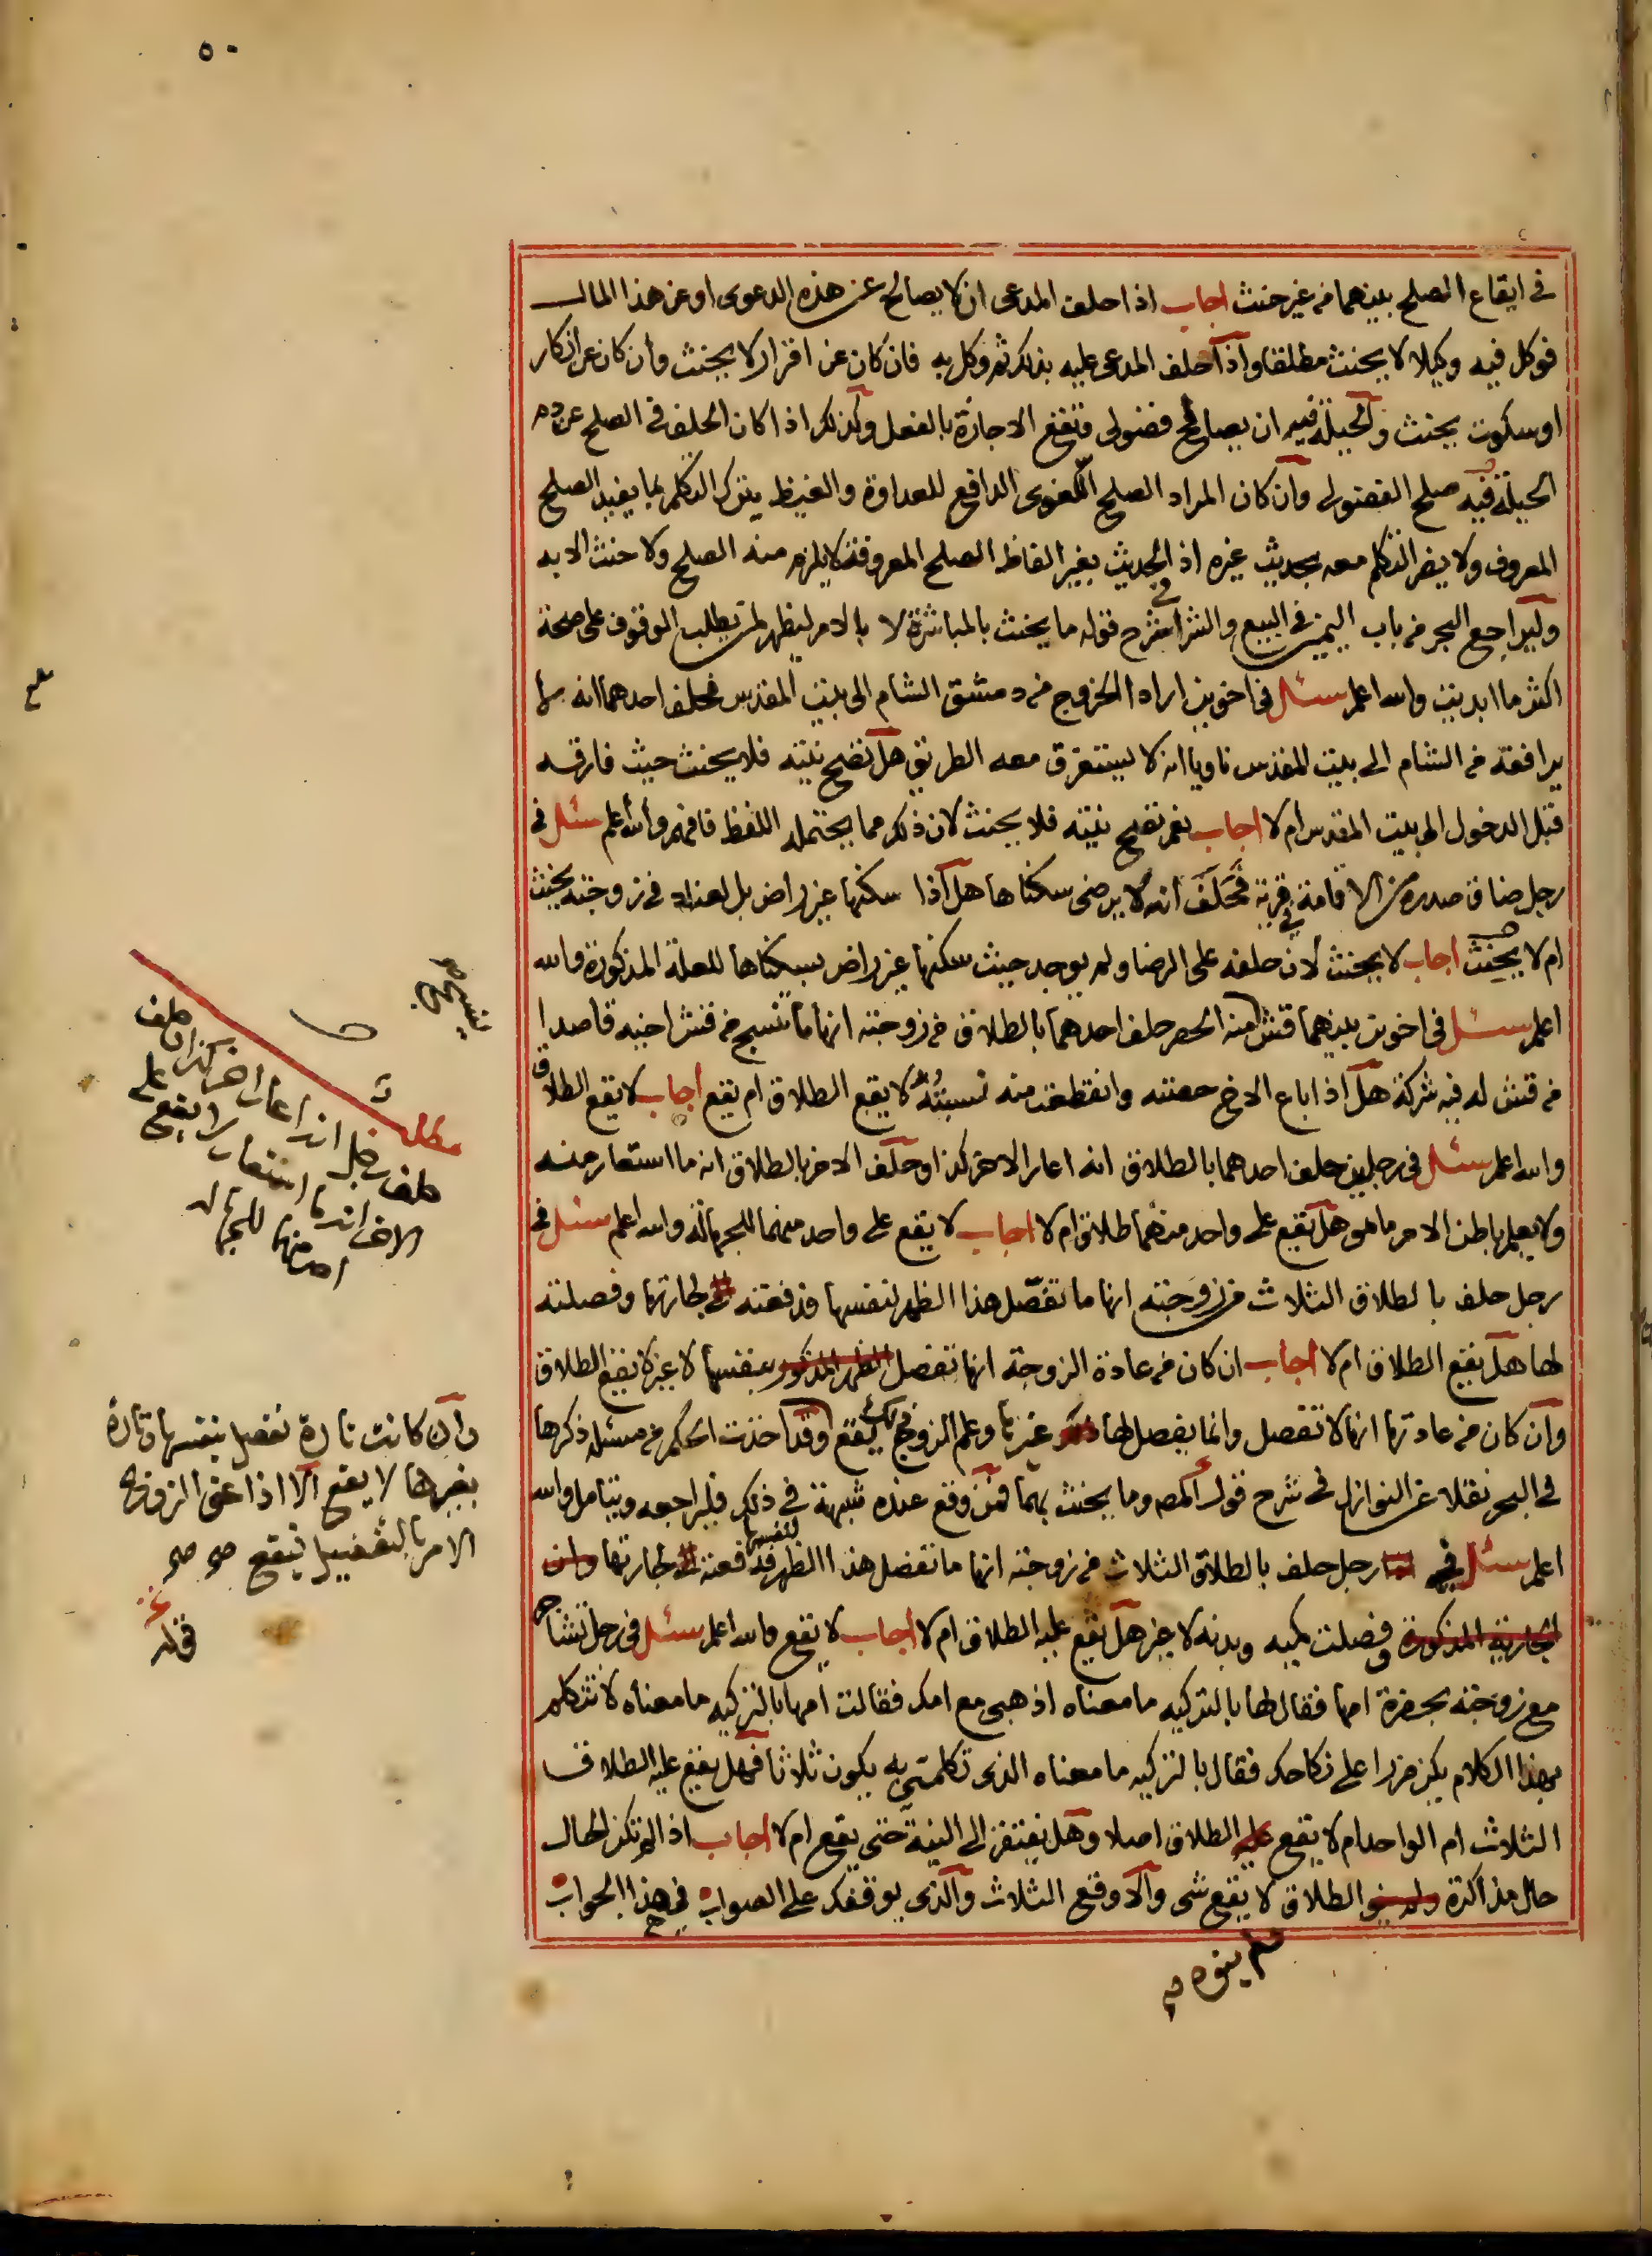 ٥٠
في ايقاع الصلح بينهما من غير حنث اجاب اذا حلف المدعى ان لا يصالح عن هذه الدعوى او عن هذا المال
فوكل فيه وكيلا لا يحنث مطلقا واذا حلف المدعى عليه بذلك ثم وكل به فان كان عن اقرار لا يحنث وان كان عن انكار
او سكوت يحنث والحيلة فيه ان يصالح فضولي وتقع الاجازة بالفعل وكذلك اذا كان الحلف في الصلح عن دم
الحيلة فيه صلح الفضولي وان كان المراد الصلح اللغوى الدافع للعداوة والغيظ يترك التكلم بما يفيد الصلح
المعروف ولا يضر التكلم معه بحديث غيره اذ الحديث بغير الفاظ الصلح المعروفة لا يلزم منه الصلح ولا حنث الا به
وليراجع البحر من باب اليمين في البيع والشرا في شرح قوله ما يحنث بالمباشرة لا بالامر ليظهر لمن يطلب الوقوف على صحة
اكثر ما ابديت والله اعلم سئل في اخوين ارادا الخروج من دمشق الشام الى بيت المقدس فحلف احدهما انه
يرافقه من الشام الى بيت المقدس ناويا انه لا يستغرق معه الطريق هل تصح نيته فلا يحنث حيث فارقه
قبل الدخول الى بيت المقدس ام لا اجاب نعم تصح نيته فلا يحنث لان ذلك مما يحتمله اللفظ فافهم والله اعلم سئل في
رجل ضاق صدره من الاقامة في قرية فحلف انه لا يرضى سكناها هل اذا سكنها غير راض بل لعناد في زوجته يحنث
ام لا يحنث اجاب لا يحنث لان حلفه على الرضا ولم يوجد حيث سكنها غير راض بسكناها للعلة المذكورة والله
اعلم سئل في اخوين بينهما قتش امنه الحصر حلف احدهما بالطلاق من زوجته انها ما تنسج من قتش اخيه قاصدا
من قتش له فيه شركة هل اذا اباع الاخ حصته وانقطعت منه نسبته لا يقع الطلاق ام يقع اجاب لا يقع الطلاق
والله اعلم سئل في رجلين حلف احدهما بالطلاق انه اعار الاخر كذا وحلف الاخر بالطلاق انه ما استعار منه
ولا يعلم باطن الامر ما هو هل يقع على واحد منهما طلاق ام لا اجاب لا يقع على واحد منهما للجهالة والله اعلم سئل في
رجل حلف بالطلاق الثلاث من زوجته انها ما تفصل هذا الظهر لنفسها فدفعته لجارتها وفصلته
لها هل يقع الطلاق ام لا اجاب ان كان من عادة الزوجة انها تفصل الظهر المذكور بنفسها لا غير لا يقع الطلاق
وان كان من عادتها انها لا تفصل وانما يفصل لها غيرها وعلم الزوج بذلك يقع وقد اخذت الحكم من مسئلة ذكرها
في البحر نقلا عن النوازل في شرح قول المص وما يحنث بهما فمن وقع عنده شبهة في ذلك فليراجعه ويتامل والله
اعلم سئل في رجل حلف بالطلاق الثلاث من زوجته انها ما تفصل هذا الظهر لنفسها فدفعته لجارتها وان
الجارية المذكورة وفصلت كميه وبدنه لا غير هل يقع عليه الطلاق ام لا اجاب لا يقع والله اعلم سئل في رجل تشاجر
مع زوجته بحضرة امها فقال لها بالتركيه ما معناه اذهبي مع امك فقالت امها بالتركيه ما معناه لا تتكلم
بهذا الكلام يكن ضررا على نكاحك فقال بالتركيه ما معناه الذى تكلمتي به يكون ثلاثا فهل يقع عليه الطلاق
الثلاث ام الواحد ام لا يقع عليه الطلاق اصلا وهل يفتقر الى النية حتى يقع ام لا اجاب اذا لم تكن الحال
حال مذاكرة الطلاق لا يقع شى والا وقع الثلاث والذى يوقفك على الصواب في هذا الجواب
ولم ينوه
مطلب
حلف رجل انه اعار اخر كذا وحلف
الاخر انه ما استعار لا يقع على
احد منهما للجهالة
وان كانت تارة تفصل بنفسها وتارة
بغيرها لا يقع الا اذا عنى الزوج
الامر بالتفصيل فيقع صح صح